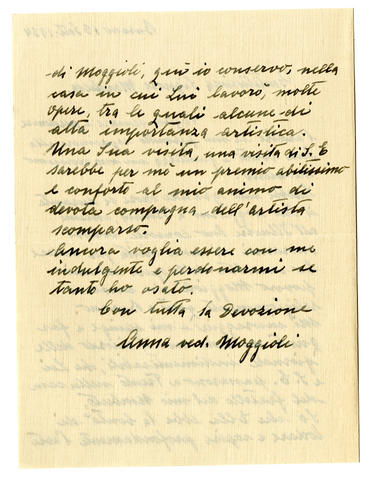 di Moggioli, quì io conservo, nella
casa in cui Lui lavorò, molte
opere, tra le quali alcune di
alta importanza artistica.
Una Sua visita, una visita di S. E
sarebbe per me un premio ambitissimo
e conforto al mio animo di
devota compagna dell'artista
scomparso.
Ancora voglia essere con me
indulgente e perdonarmi se
tanto ho osato.
Con tutta la Devozione
Anna ved. Moggioli